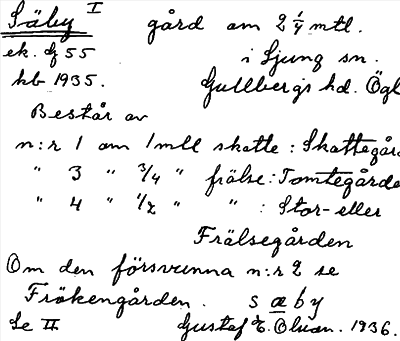 Säby I gård om 2 1/4 mtl.
ek. bf 55 i Ljung sn.
kb 1935. Gullbergs hd. Ögl
Består av
n:r 1 om 1 mtl skatte: Skattegård
" 3 " 3/4 " frälse: Tomtegårde
" 4 " 1/2 " " : Stor- eller
Frälsegården
Om den försvunna n:r 2 se
Frökengården. s æ b y
Se II Gustaf E. Olsson. 1936.